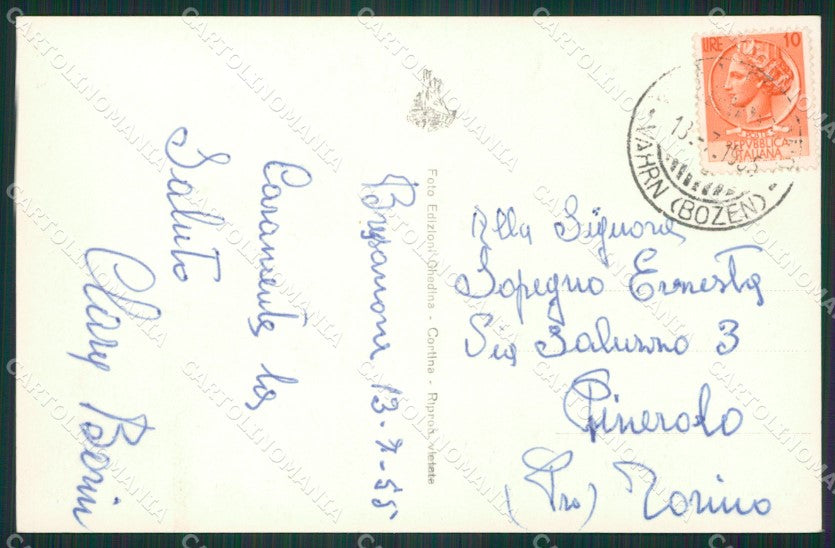 Bressanone 13-7-55
Caramente la
Saluto
Clary Borin
Foto Edizioni Ghedina - Cortina - Riprod. vietata
LIRE 10
POSTE
REPVBBLICA
ITALIANA
13-7-1955
VAHRN (BOZEN)
Alla Signora
Sopegno Ernesta
Via Saluzzo 3
Pinerolo
(Pro) Torino
CARTOLINOMANIA